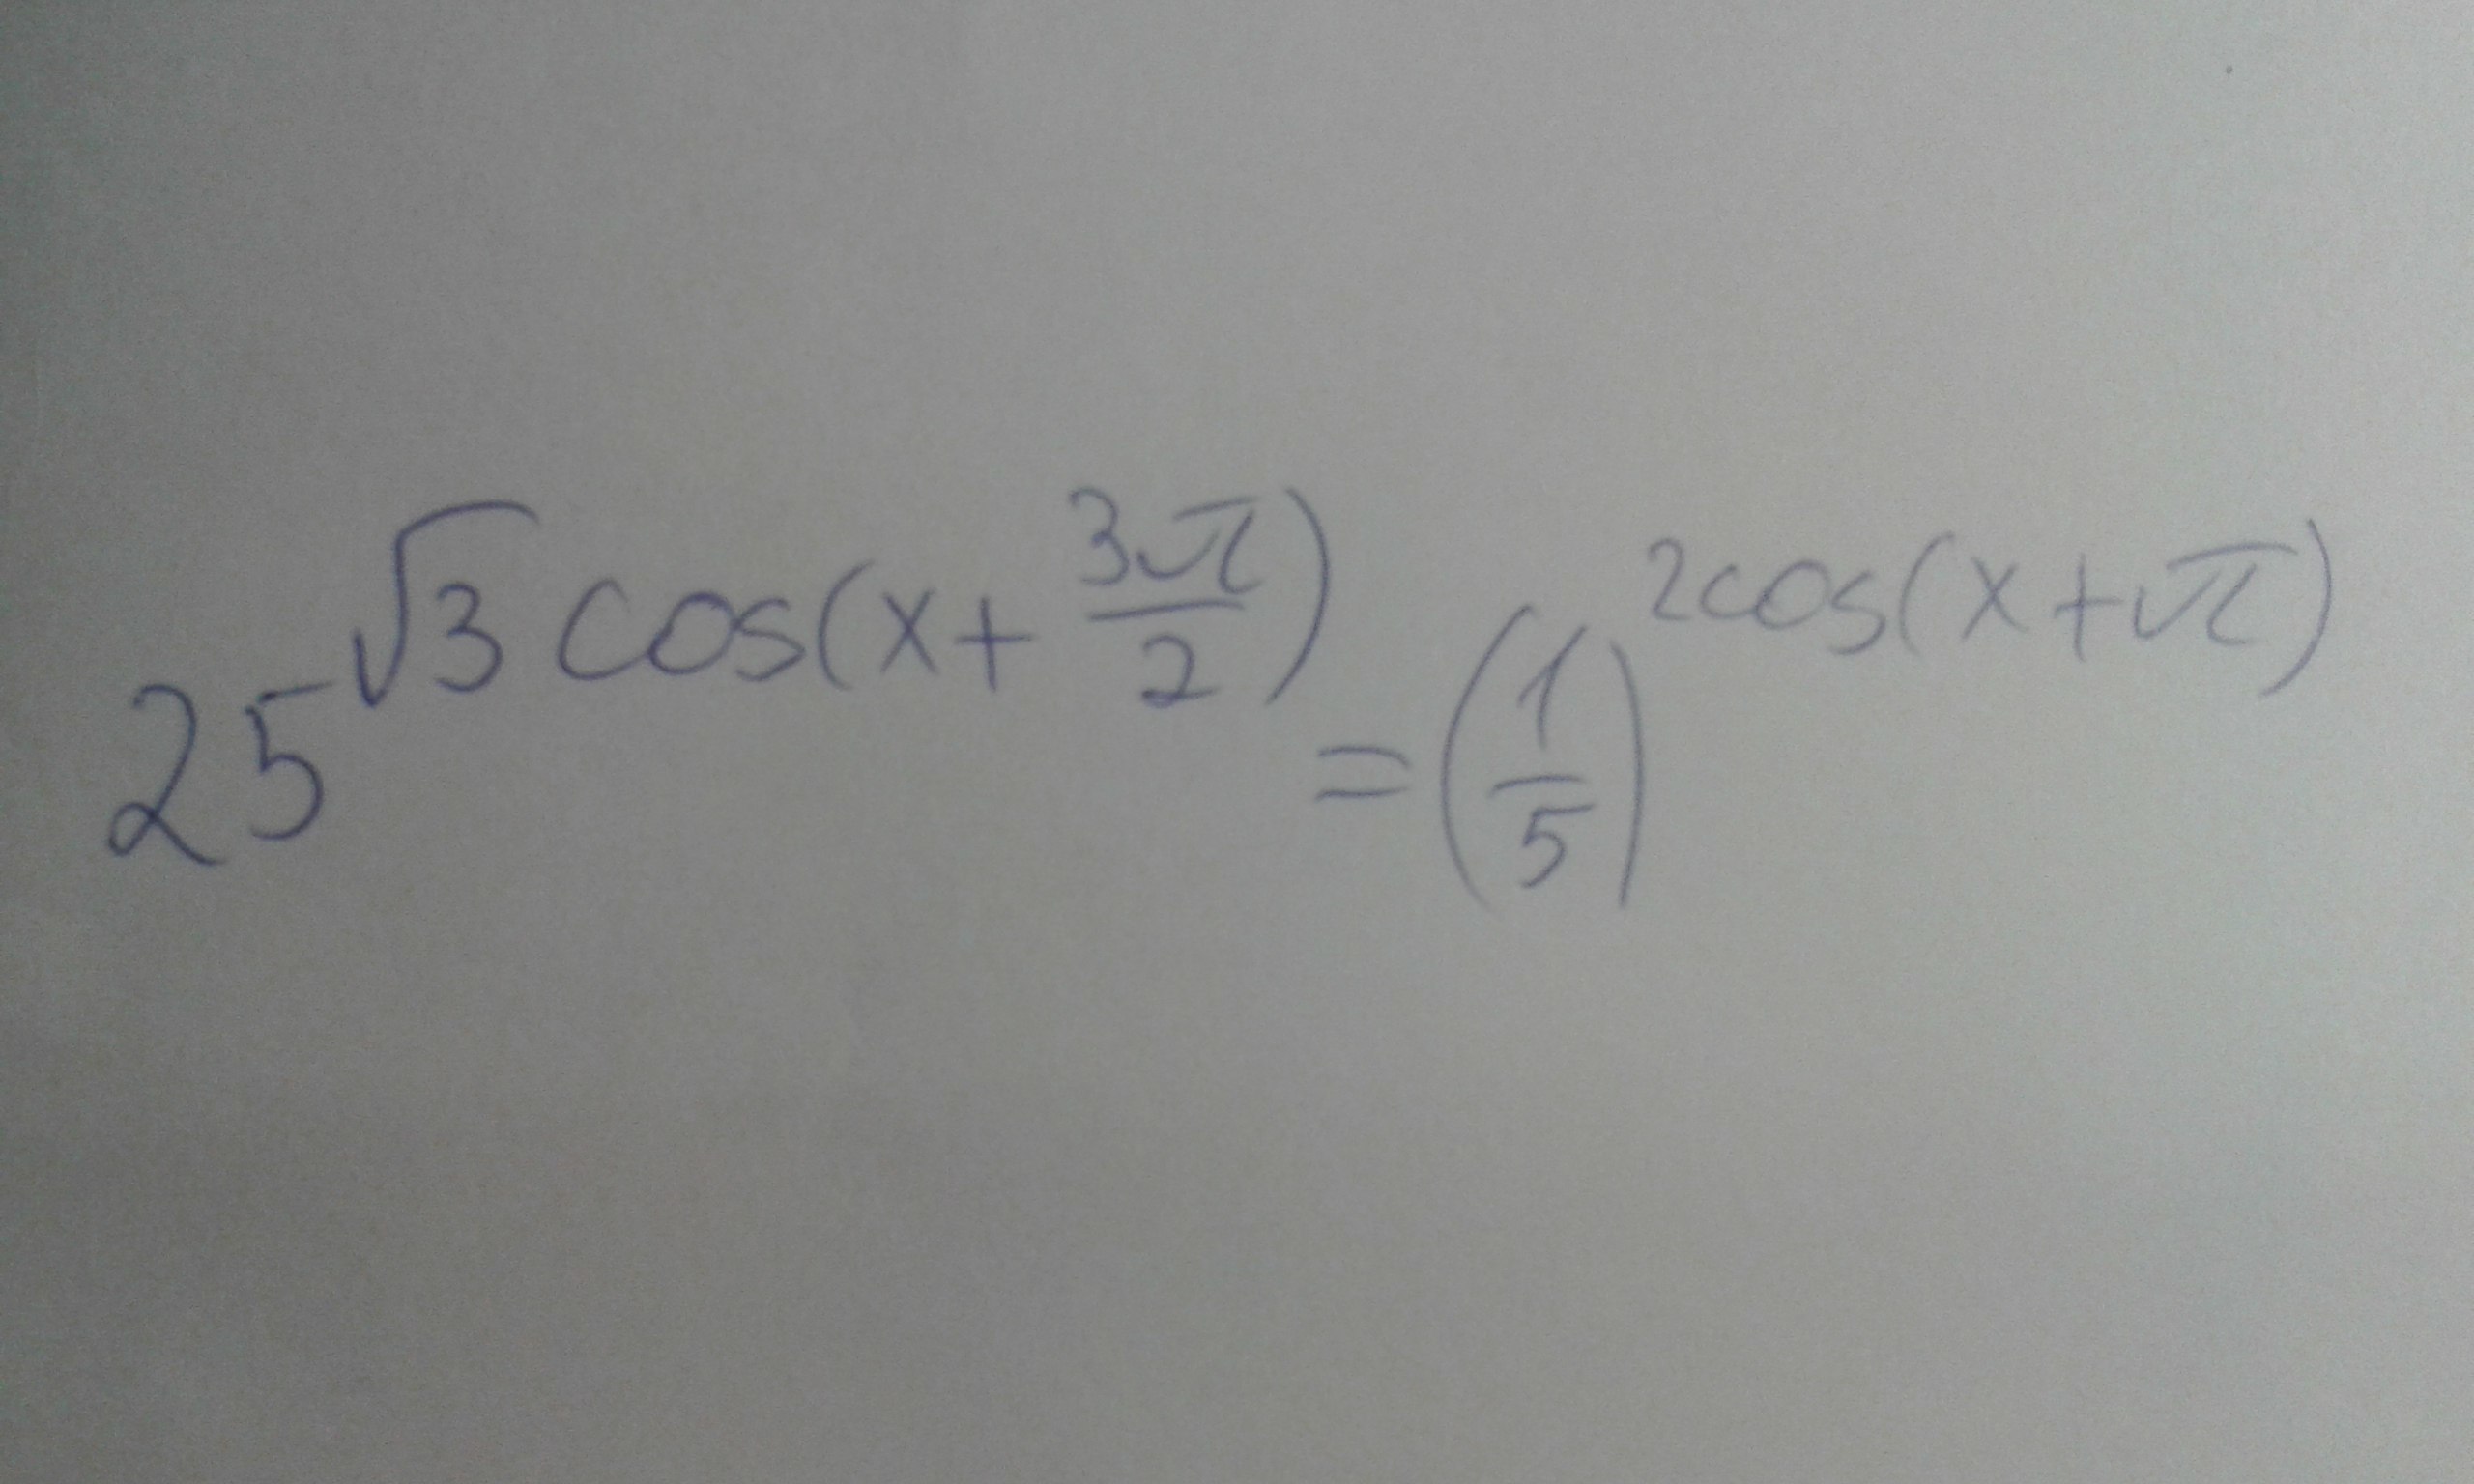 25^{√3 cos(x + 3π/2)} = (1/5)^{2cos(x+π)}